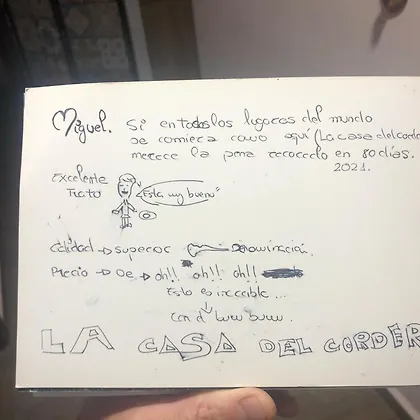 Miguel. Si en todos los lugares del mundo
se comiera como aquí (La casa del corde
merece la pena recorrerlo en 80 días.
2021.
Excelente
Trato
"Esta muy bueno"
Calidad → superior
Precio → De → oh!! oh!! oh!!
Esto es increible...
LA CASA DEL CORDER